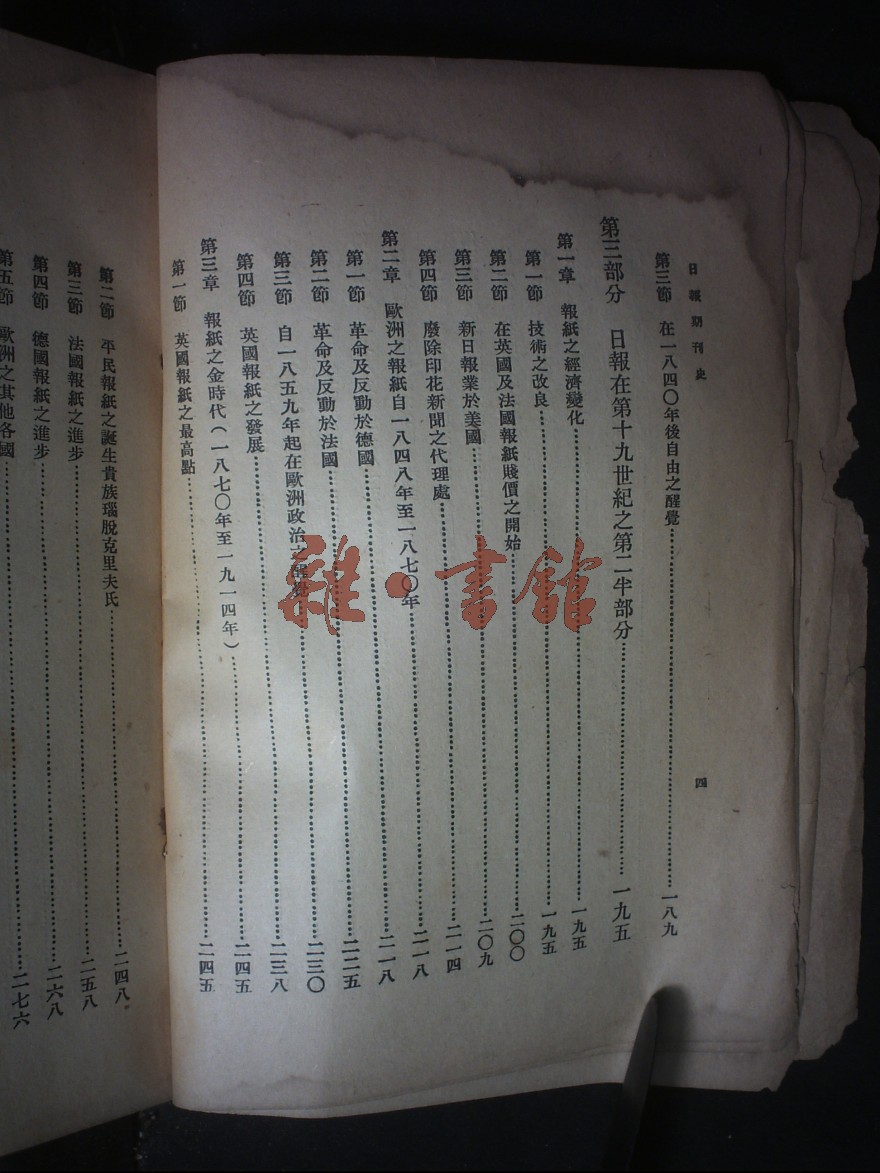 日報期刊史
四
第三節 在一八四〇年後自由之醒覺 一八九
第三部分 日報在第十九世紀之第二半部分 一九五
第一章 報紙之經濟變化 一九五
第一節 技術之改良 一九五
第二節 在英國及法國報紙賤價之開始 二〇〇
第三節 新日報業於美國 二〇九
第四節 廢除印花新聞之代理處 二一四
第二章 歐洲之報紙自一八四八年至一八七〇年 二一八
第一節 革命及反動於德國 二二五
第二節 革命及反動於法國 二三〇
第三節 自一八五九年起在歐洲政治之醒覺 二三八
第四節 英國報紙之發展 二四五
第三章 報紙之金時代(一八七〇年至一九一四年) 二四五
第一節 英國報紙之最高點
第二節 平民報紙之誕生貴族瑙脫克里夫氏 二四八
第三節 法國報紙之進步 二五八
第四節 德國報紙之進步 二六八
第五節 歐洲之其他各國 二七六
雜·書館